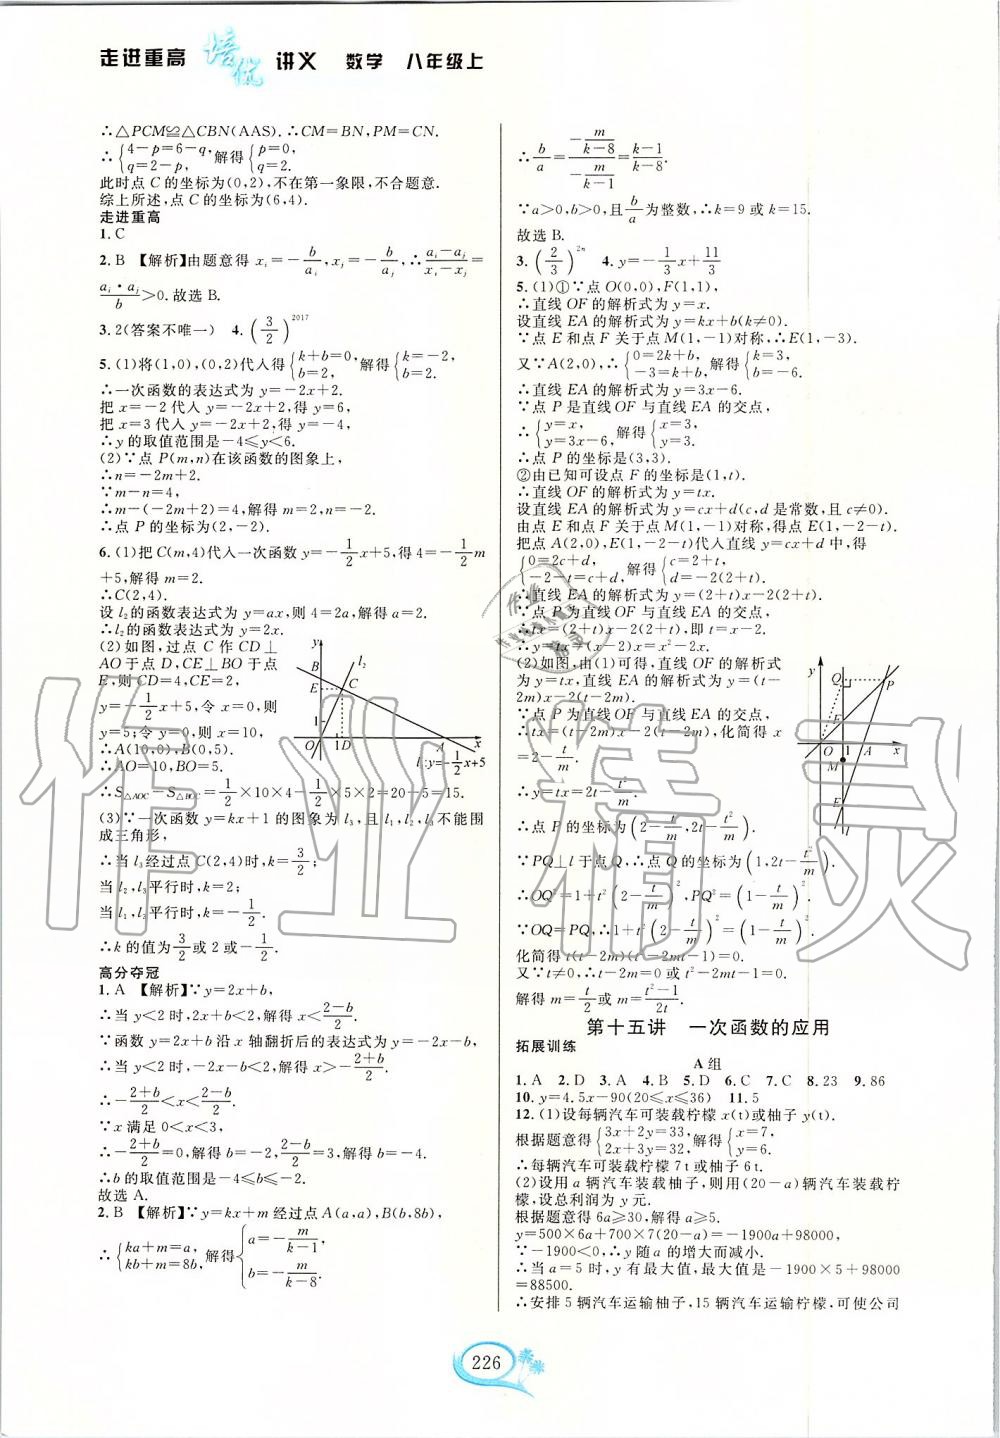 走进重高 培优 讲义 数学 八年级上
∴△PCM≌△CBN(AAS).∴CM=BN,PM=CN.
∴{4-p=6-q, q=2-p, 解得{p=0, q=2.
此时点C的坐标为(0,2),不在第一象限,不合题意.
综上所述,点C的坐标为(6,4).
走进重高
1.C
2.B 【解析】由题意得 x_i=-b/a_i,x_j=-b/a_j,∴(a_i-a_j)/(x_i-x_j)=
a_i·a_j/b>0.故选B.
3.2(答案不唯一) 4.(3/2)^2017
5.(1)将(1,0),(0,2)代入得{k+b=0, b=2, 解得{k=-2, b=2.
∴一次函数的表达式为y=-2x+2.
把x=-2代入y=-2x+2,得y=6,
把x=3代入y=-2x+2,得y=-4,
∴y的取值范围是-4≤y<6.
(2)∵点P(m,n)在该函数的图象上,
∴n=-2m+2.
∵m-n=4,
∴m-(-2m+2)=4,解得m=2,n=-2.
∴点P的坐标为(2,-2).
6.(1)把C(m,4)代入一次函数y=-1/2x+5,得4=-1/2m
+5,解得m=2.
∴C(2,4).
设l₂的函数表达式为y=ax,则4=2a,解得a=2.
∴l₂的函数表达式为y=2x.
(2)如图,过点C作CD⊥
AO于点D,CE⊥BO于点
E,则CD=4,CE=2.
y=-1/2x+5,令x=0,则
y=5;令y=0,则x=10,
∴A(10,0),B(0,5).
∴AO=10,BO=5.
y l₂ B E C 1 O 1 D A x
l₁:y=-1/2x+5
∴S△AOC-S△BOC=1/2×10×4-1/2×5×2=20-5=15.
(3)∵一次函数y=kx+1的图象为l₃,且l₁,l₂,l₃不能围
成三角形,
∴当l₃经过点C(2,4)时,k=3/2;
当l₂,l₃平行时,k=2;
当l₁,l₃平行时,k=-1/2.
∴k的值为3/2或2或-1/2.
高分夺冠
1.A 【解析】∵y=2x+b,
∴当y<2时,2x+b<2,解得x<(2-b)/2.
∵函数y=2x+b沿x轴翻折后的表达式为-y=2x+b,
即y=-2x-b,
∴当y<2时,-2x-b<2,解得x>-(2+b)/2.
∴-(2+b)/2<x<(2-b)/2.
∵x满足0<x<3,
∴-(2+b)/2=0,解得b=-2,(2-b)/2=3,解得b=-4.
∴b的取值范围是-4≤b≤-2.
故选A.
2.B 【解析】∵y=kx+m经过点A(a,a),B(b,8b),
∴{ka+m=a, kb+m=8b, 解得{a=-m/(k-1), b=-m/(k-8).
∴b/a=(-m/(k-8))/(-m/(k-1))=(k-1)/(k-8).
∵a>0,b>0,且b/a为整数,∴k=9或k=15.
故选B.
3.(2/3)^2n 4.y=-1/3x+11/3
5.(1)①∵点O(0,0),F(1,1),
∴直线OF的解析式为y=x.
设直线EA的解析式为y=kx+b(k≠0).
∵点E和点F关于点M(1,-1)对称,∴E(1,-3).
又∵A(2,0),∴{0=2k+b, -3=k+b, 解得{k=3, b=-6.
∴直线EA的解析式为y=3x-6.
∵点P是直线OF与直线EA的交点,
∴{y=x, y=3x-6, 解得{x=3, y=3.
∴点P的坐标是(3,3).
②由已知可设点F的坐标是(1,t).
∴直线OF的解析式为y=tx.
设直线EA的解析式为y=cx+d(c,d是常数,且c≠0).
由点E和点F关于点M(1,-1)对称,得点E(1,-2-t).
把点A(2,0),E(1,-2-t)代入直线y=cx+d中,得
{0=2c+d, -2-t=c+d, 解得{c=2+t, d=-2(2+t).
∴直线EA的解析式为y=(2+t)x-2(2+t).
∵点P为直线OF与直线EA的交点,
∴tx=(2+t)x-2(2+t),即t=x-2.
∴y=tx=(x-2)x=x²-2x.
(2)如图,由(1)可得,直线OF的解析式
为y=tx,直线EA的解析式为y=(t-
2m)x-2(t-2m).
∵点P为直线OF与直线EA的交点,
∴tx=(t-2m)x-2(t-2m),化简得x
=2-t/m.
y Q P F O 1 A x M E l
∴y=tx=2t-t²/m.
∴点P的坐标为(2-t/m,2t-t²/m).
∵PQ⊥l于点Q,∴点Q的坐标为(1,2t-t²/m).
∴OQ²=1+t²(2-t/m)²,PQ²=(1-t/m)².
∵OQ=PQ,∴1+t²(2-t/m)²=(1-t/m)².
化简得t(t-2m)(t²-2mt-1)=0.
又∵t≠0,∴t-2m=0或t²-2mt-1=0.
解得m=t/2或m=(t²-1)/2t.
第十五讲 一次函数的应用
拓展训练
A组
1.A 2.D 3.A 4.B 5.D 6.C 7.C 8.23 9.86
10.y=4.5x-90(20≤x≤36) 11.5
12.(1)设每辆汽车可装载柠檬x(t)或柚子y(t).
根据题意得{3x+2y=33, 2x+3y=32, 解得{x=7, y=6.
∴每辆汽车可装载柠檬7t或柚子6t.
(2)设用a辆汽车装载柚子,则用(20-a)辆汽车装载柠
檬,设总利润为y元.
根据题意得6a≥30,解得a≥5.
y=500×6a+700×7(20-a)=-1900a+98000,
∵-1900<0,∴y随a的增大而减小.
∴当a=5时,y有最大值,最大值=-1900×5+98000
=88500.
∴安排5辆汽车运输柚子,15辆汽车运输柠檬,可使公司
226
作业精灵